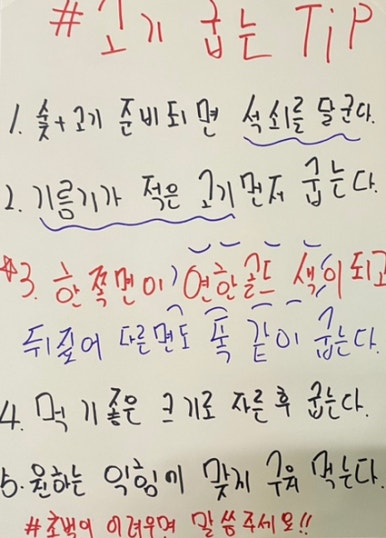 # 고기 굽는 TiP
1. 숯+고기 준비되면 석쇠를 달군다.
2. 기름기가 적은 고기먼저 굽는다.
☆3. 한쪽면이 연한골드 색이되고
뒤짚어 다른면도 푹 같이 굽는다.
4. 먹기좋은 크기로 자른후 굽는다.
5. 원하는 익힘이 맞게 구워 먹는다.
#초벌이 어려우면 말씀주세요!!